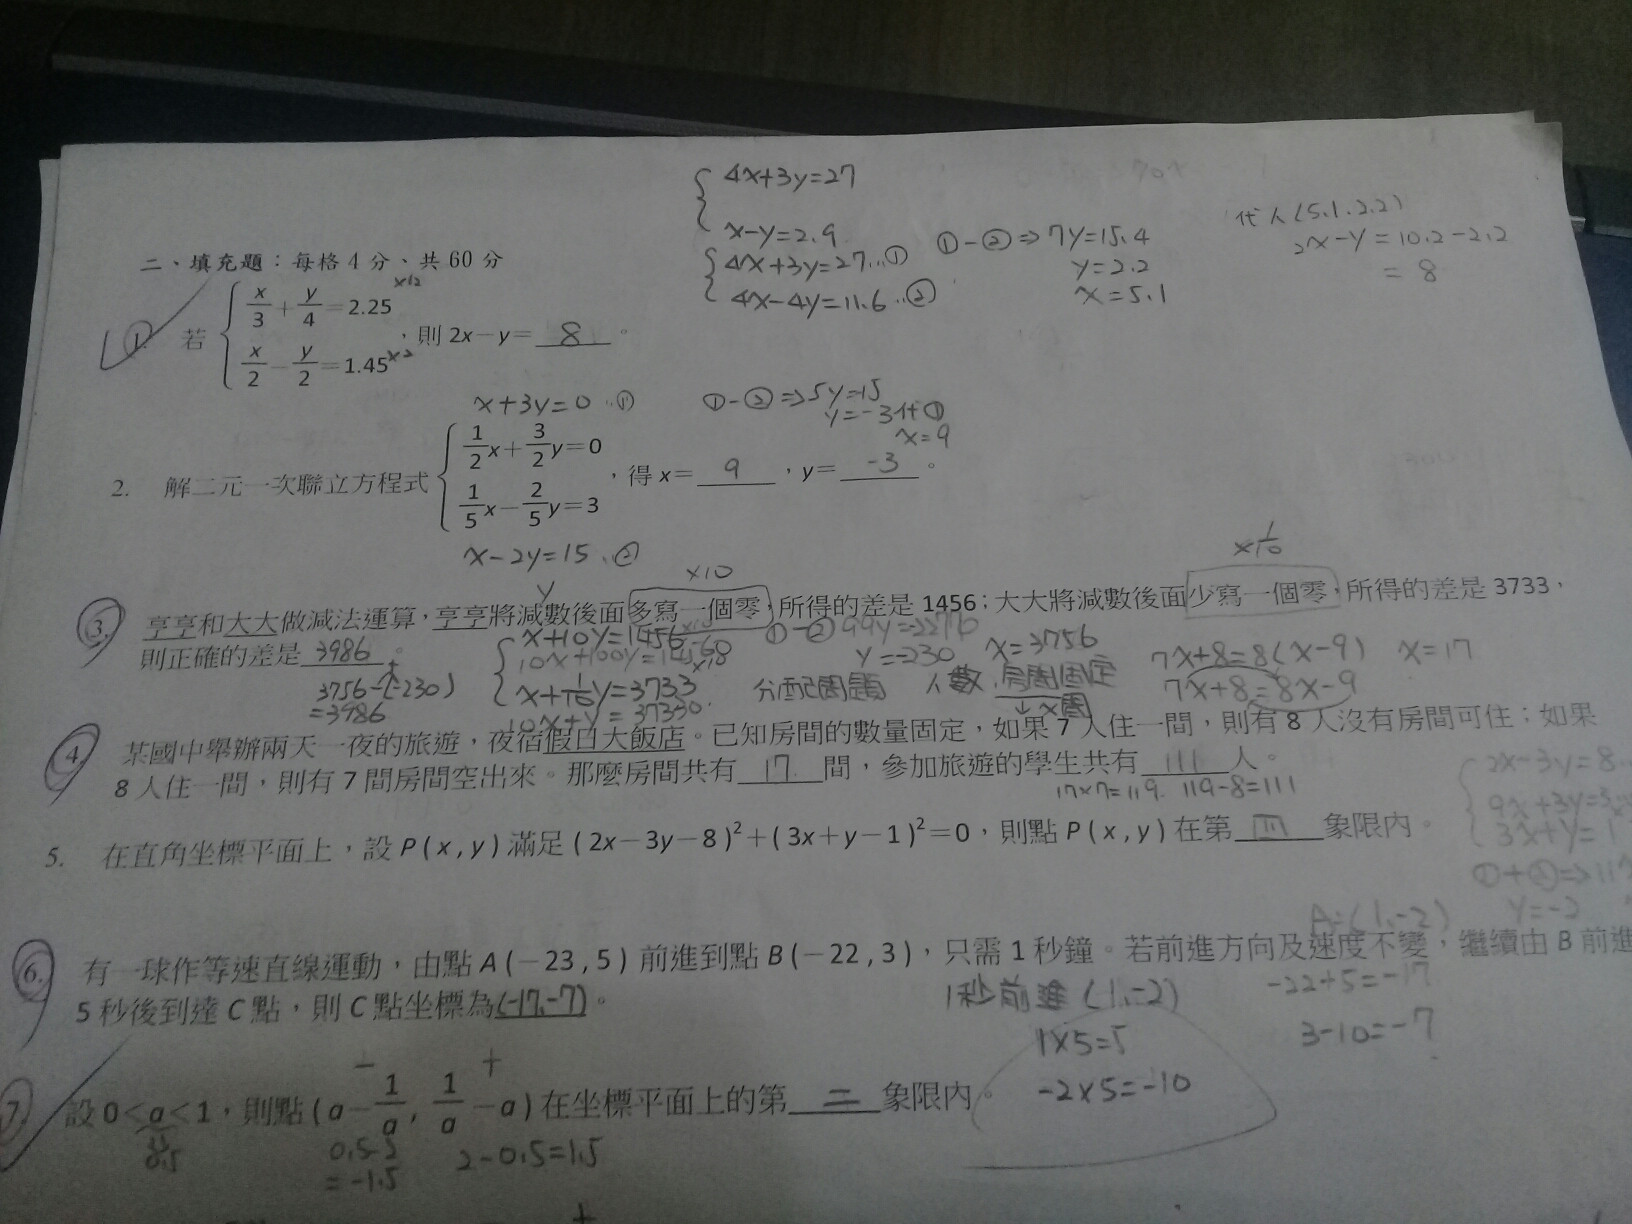 4x+3y=27
x-y=2.9
4x+3y=27...①
4x-4y=11.6..②
①-②⇒7y=15.4
y=2.2
x=5.1
代入(5.1.2.2)
2x-y=10.2-2.2
=8
二、填充題：每格 4 分、共 60 分
1. 若 x/3+y/4=2.25 x12
x/2-y/2=1.45 x2
，則 2x-y= 8 。
x+3y=0..①
①-②⇒5y=15
y=-3代①
x=9
2. 解二元一次聯立方程式 1/2x+3/2y=0
1/5x-2/5y=3
，得 x= 9 ，y= -3 。
x-2y=15..②
y x10 x1/10
3. 亨亨和大大做減法運算，亨亨將減數後面多寫一個零，所得的差是 1456；大大將減數後面少寫一個零，所得的差是 3733，
則正確的差是 3986 。
3756-(-230)
=3986
x+10y=1456
10x+100y=14560
x+1/10y=3733 x10
10x+y=37330
①-② 99y=-22770
y=-230 x=3756
分配問題 人數,房間固定
↓x間
7x+8=8(x-9) x=17
7x+8=8x-9
4. 某國中舉辦兩天一夜的旅遊，夜宿假日大飯店。已知房間的數量固定，如果 7 人住一間，則有 8 人沒有房間可住；如果
8 人住一間，則有 7 間房間空出來。那麼房間共有 17 間，參加旅遊的學生共有 111 人。
17×7=119. 119-8=111
5. 在直角坐標平面上，設 P(x,y)滿足(2x-3y-8)²+(3x+y-1)²=0，則點 P(x,y)在第 四 象限內。
2x-3y=8
9x+3y=3
3x+y=1
①+②⇒11
y=-2
A=(1,-2)
6. 有一球作等速直線運動，由點 A(-23,5)前進到點 B(-22,3)，只需 1 秒鐘。若前進方向及速度不變，繼續由 B 前進
5 秒後到達 C 點，則 C 點坐標為(-17,-7)。
1秒前進(1,-2)
1×5=5
-2×5=-10
-22+5=-17
3-10=-7
7. 設 0<a<1，則點(a-1/a, 1/a-a)在坐標平面上的第 二 象限內。
- +
0.5
0.5-2
=-1.5
2-0.5=1.5
+